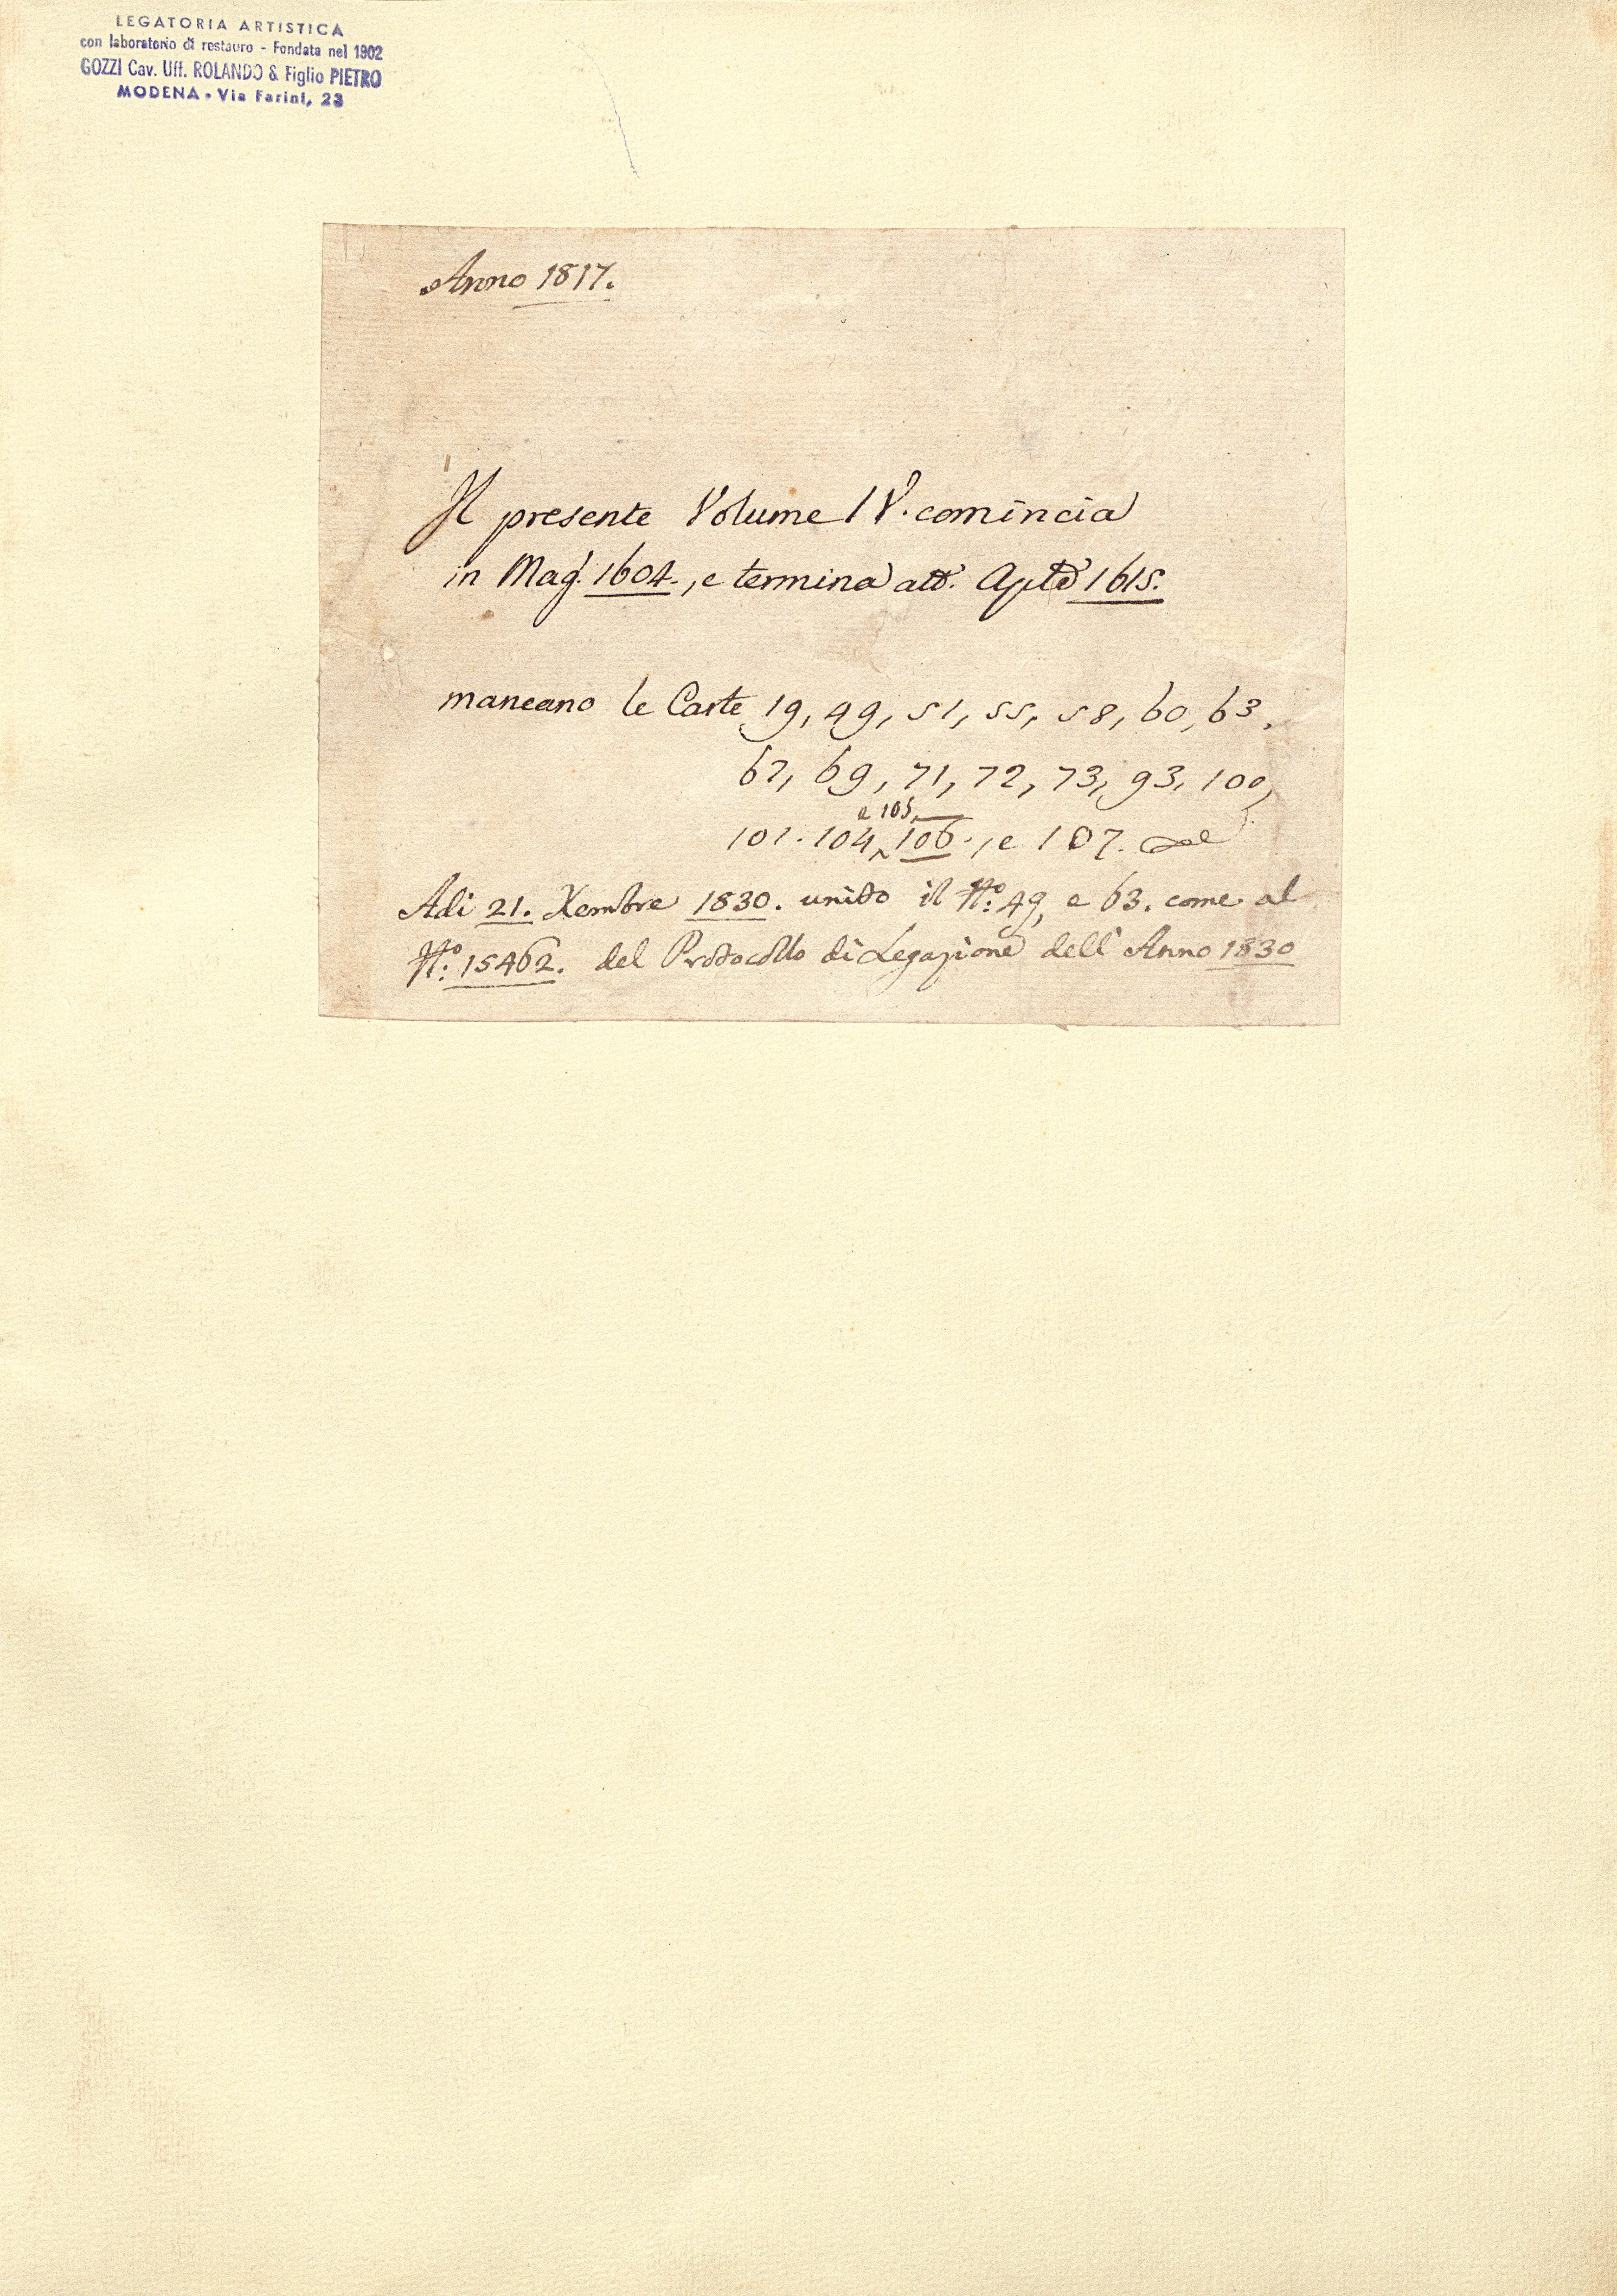 LEGATORIA ARTISTICA
con laboratorio di restauro - Fondata nel 1902
GOZZI Cav. Uff. ROLANDO & Figlio PIETRO
MODENA - Via Farini, 23
Anno 1817.
Il presente Volume IV. comincia
in Mag. 1604., e termina att. 1615.
mancano le Carte 19, 49, 51, 55, 58, 60, 63,
67, 69, 71, 72, 73, 93, 100,
e 105,
101. 104, 106., e 107.
Adi 21. Xembre 1830. unito il N.º 49, e 63. come al
N.º 15462. del Protocollo di Legazione dell' Anno 1830